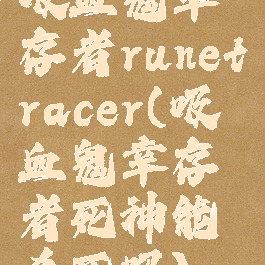 吸血鬼幸
存者runet
racer(吸
血鬼幸存
者死神能
杀死吗)